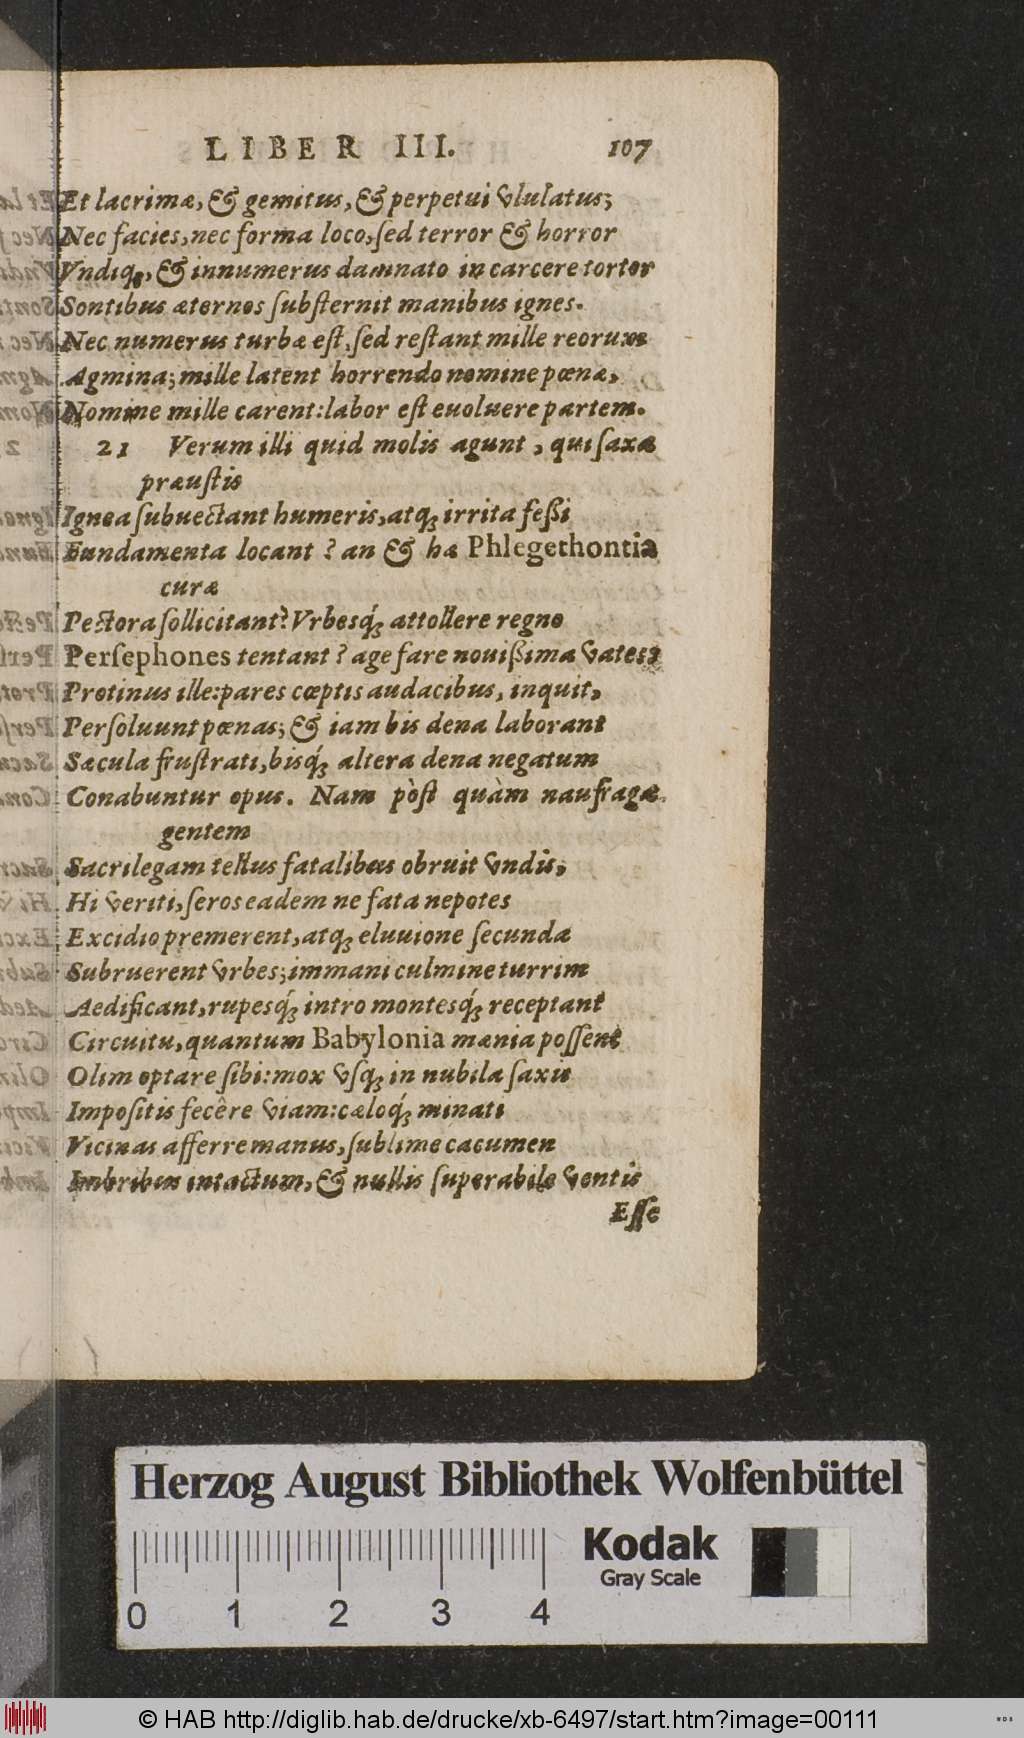 LIBER III. 107
Et lacrimæ, & gemitus, & perpetui vlulatus;
Nec facies, nec forma loco, sed terror & horror
Vndiq;, & innumerus damnato in carcere tortor
Sontibus æternos substernit manibus ignes.
Nec numerus turbæ est, sed restant mille reorum
Agmina; mille latent horrendo nomine pœnæ,
Nomine mille carent: labor est euoluere partem.
21 Verum illi quid molis agunt, qui saxa
præustis
Ignea subuectant humeris, atq; irrita fessi
Fundamenta locant? an & hæ Phlegethontia
curæ
Pectora sollicitant? Vrbesq́; attollere regno
Persephones tentant? age fare nouissima vates;
Protinus ille: pares cœptis audacibus, inquit,
Persoluunt pœnas; & iam bis dena laborant
Sæcula frustrati, bisq́; altera dena negatum
Conabuntur opus. Nam pòst quàm naufragæ
gentem
Sacrilegam tellus fatalibus obruit vndis,
Hi veriti, seros eadem ne fata nepotes
Excidio premerent, atq; eluuione secunda
Subruerent vrbes; immani culmine turrim
Aedificant, rupesq́; intro montesq́; receptant
Circuitu, quantum Babylonia mænia possent
Olim optare sibi: mox vsq; in nubila saxis
Impositis fecêre viam: cæloq́; minati
Vicinas afferre manus, sublime cacumen
Imbribus intactum, & nullis superabile ventis
Esse
Herzog August Bibliothek Wolfenbüttel
Kodak
Gray Scale
0 1 2 3 4
© HAB http://diglib.hab.de/drucke/xb-6497/start.htm?image=00111